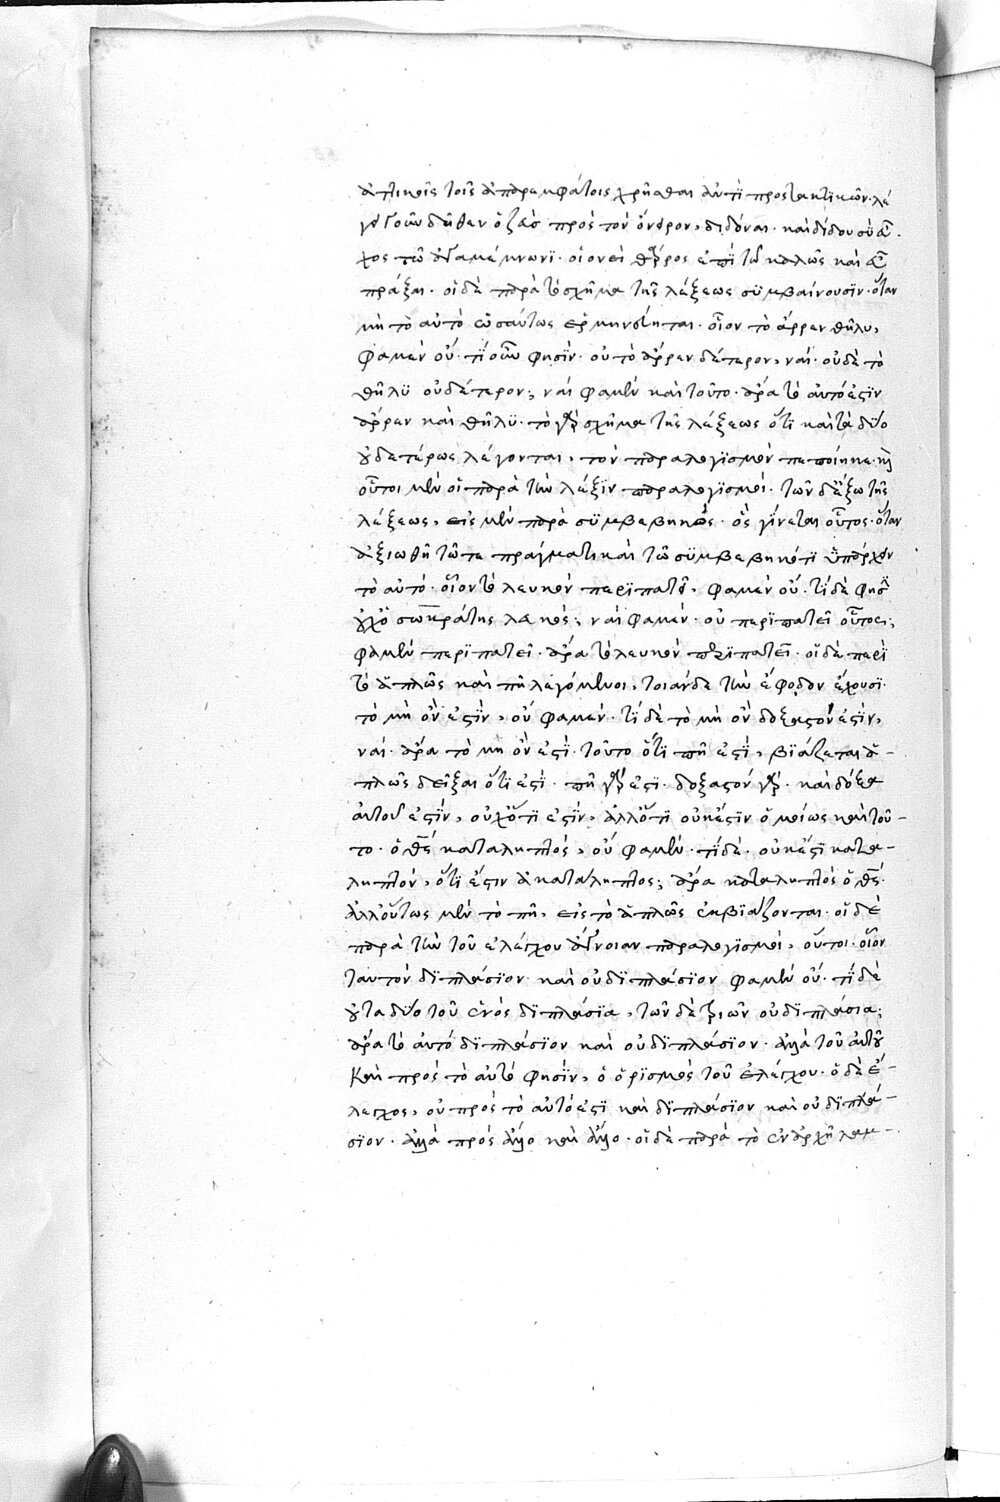 ἀττικοῖς τοῖς ἀπαρεμφάτοις χρῆσθαι ἀντὶ προστακτικῶν. λέ
γει γοῦν δῆθεν ὁ ζεὺς πρὸς τὸν ὄνειρον, διδόναι. καὶ δίδου σὺ εὖ
χος τῷ ἀγαμέμνωνι. οἱονεὶ θάρρος ἐπὶ τῷ καλῶς καὶ εὖ
πρᾶξαι. οἱ δὲ παρὰ τὸ σχῆμα τῆς λέξεως συμβαίνουσιν. ὅταν
μὴ τὸ αὐτὸ ὡσαύτως ἑρμηνεύηται. οἷον τὸ ἄρρεν θῆλυ,
φαμὲν οὔ. τί οὖν φησίν. οὐ τὸ ἄρρεν δέτερον, ναί. οὐδὲ τὸ
θῆλυ οὐδέτερον; ναί φαμὲν καὶ τοῦτο. ἆρα τὸ αὐτό ἐστιν
ἄρρεν καὶ θῆλυ. τὸ γὰρ σχῆμα τῆς λέξεως ὅτι καὶ τὰ δύο
οὐδετέρως λέγονται, τὸν παραλογισμὸν πεποίηκε. καὶ
οὗτοι μὲν οἱ παρὰ τὴν λέξιν παραλογισμοί. τῶν δὲ ἔξω τῆς
λέξεως, εἷς μὲν παρὰ συμβεβηκός. ὃς γίνεται οὕτως. ὅταν
ἀξιωθῇ τῷ τε πράγματι καὶ τῷ συμβεβηκότι ὑπάρχειν
τὸ αὐτό. οἷον τὸ λευκὸν περιπατεῖ, φαμὲν οὔ. τί δέ φησιν
οὐχὶ ὁ σωκράτης λευκός; ναί φαμέν. οὐ περιπατεῖ οὗτος;
φαμὲν περιπατεῖ. ἆρα τὸ λευκὸν περιπατεῖ. οἱ δὲ περὶ
τὸ ἁπλῶς καὶ πῇ λεγόμενοι, τοιάνδε τὴν ἔφοδον ἔχουσι.
τὸ μὴ ὄν ἐστιν, οὔ φαμέν. τί δὲ τὸ μὴ ὂν δοξαστόν ἐστιν,
ναί. ἆρα τὸ μὴ ὄν ἐστι. τοῦτο ὅτι πῇ ἐστί, βιάζεται ἁ-
πλῶς δεῖξαι ὅτι ἐστί. πῇ γάρ ἐστι. δοξαστὸν γάρ. καὶ δόξα
αὐτοῦ ἐστίν, οὐχ ὅτι ἐστίν, ἀλλ' ὅτι οὐκ ἔστιν ὁμοίως καὶ τοῦ-
το. ὁ θεὸς καταληπτός, οὔ φαμέν. τί δέ. οὐκ ἔστι κατα-
ληπτόν, ὅτι ἐστιν ἀκατάληπτος; ἆρα καταληπτὸς ὁ θεός.
ἀλλ' οὕτως μὲν τὸ πῇ, εἰς τὸ ἁπλῶς ἐκβιάζονται. οἱ δὲ
παρὰ τὴν τοῦ ἐλέγχου ἄγνοιαν παραλογισμοί, οὗτοι. οἷον
ταυτὸν διπλάσιον καὶ οὐ διπλάσιον φαμὲν οὔ. τί δὲ
οὐ τὰ δύο τοῦ ἑνὸς διπλάσια, τῶν δὲ τριῶν οὐ διπλάσια;
ἆρα τὸ αὐτὸ διπλάσιον καὶ οὐ διπλάσιον. ἀλλὰ τοῦ αὐτοῦ
καὶ πρὸς τὸ αὐτό φησίν, ὁ ὁρισμὸς τοῦ ἐλέγχου. ὁ δὲ ἔ-
λεγχος, οὐ πρὸς τὸ αὐτό ἐστι καὶ διπλάσιον καὶ οὐ διπλά-
σιον. ἀλλὰ πρὸς ἄλλο καὶ ἄλλο. οἱ δὲ παρὰ τὸ ἐν ἀρχῇ λαμ-